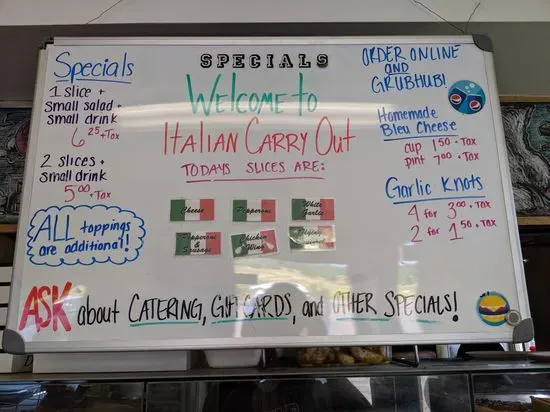 SPECIALS
Specials
1 slice +
small salad +
small drink
6.25 + Tax
2 slices +
small drink
5.00 + Tax
ALL toppings
are additional!
Welcome to
Italian Carry Out
TODAYS SLICES ARE:
Cheese
Pepperoni
White Garlic
Pepperoni & Sausage
Chicken Wing
ORDER ONLINE
AND
GRUBHUB!
Homemade
Bleu Cheese
cup 1.50 + Tax
pint 7.00 + Tax
Garlic Knots
4 for 3.00 + Tax
2 for 1.50 + Tax
ASK about CATERING, GIFT CARDS, and OTHER SPECIALS!